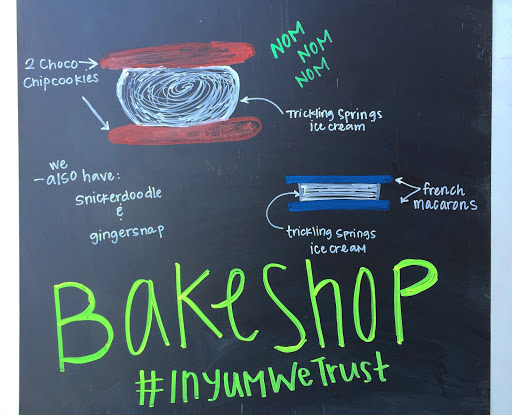 2 Choco
Chipcookies
NOM
NOM
NOM
Trickling Springs
ice cream
we
also have:
Snickerdoodle
&
gingersnap
french
macarons
trickling springs
ice cream
BakeShop
#InYumWeTrust